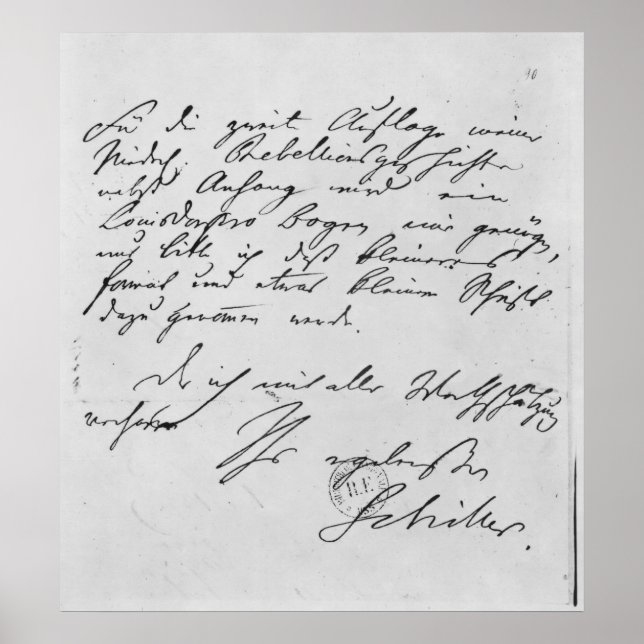 90
Für die zweite Auflage meiner
Niederl. Rebellionsgeschichte
nebst Anhang wird ein
Louisdor pro Bogen mir genügen,
nur bitte ich daß kleineres
format und etwas kleinere Schrift
dazu genommen werde.
Der ich mit aller Werthschätzung
verharre Ihr ergebenster
R.F.
Schiller.